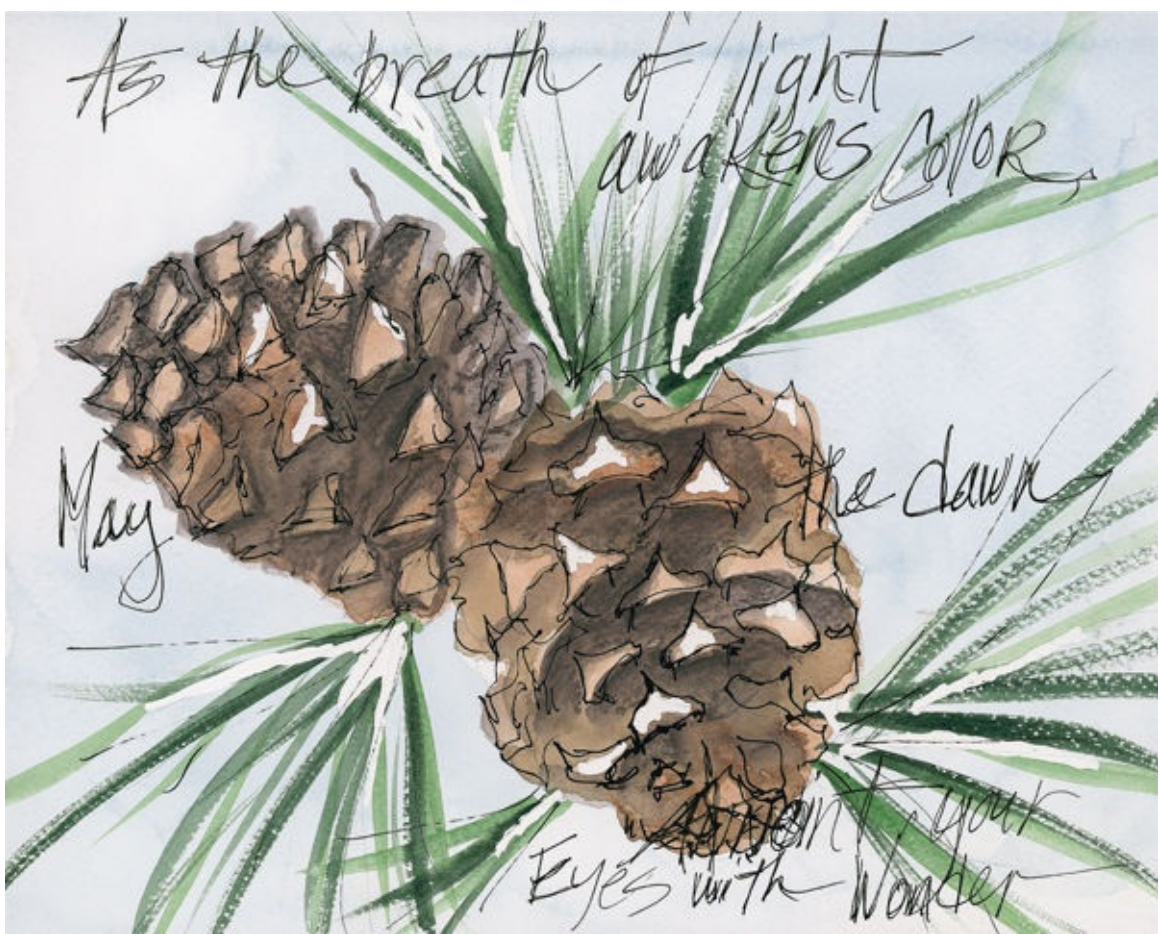 As the breath of light
awakens Color,
May the dawn
Anoint your
Eyes with Wonder